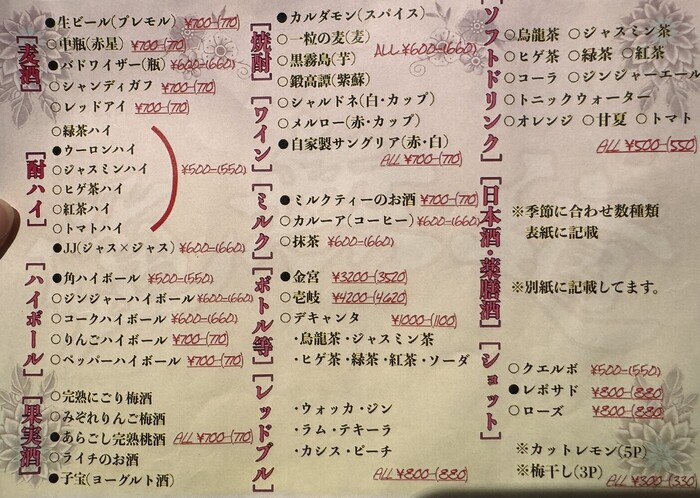 [麦酒]
●生ビール(プレモル) ¥700-(770)
○中瓶(赤星) ¥700-(770)
●バドワイザー(瓶) ¥600-(660)
○シャンディガフ ¥700-(770)
○レッドアイ ¥700-(770)
[酎ハイ]
○緑茶ハイ
●ウーロンハイ
○ジャスミンハイ ¥500-(550)
○ヒゲ茶ハイ
○紅茶ハイ
○トマトハイ
●JJ(ジャス×ジャス) ¥600-(660)
[ハイボール]
●角ハイボール ¥500-(550)
○ジンジャーハイボール ¥600-(660)
○コークハイボール ¥600-(660)
○りんごハイボール ¥700-(770)
○ペッパーハイボール ¥700-(770)
[果実酒]
○完熟にごり梅酒
○みぞれりんご梅酒
●あらごし完熟桃酒 ALL ¥700-(770)
○ライチのお酒
●子宝(ヨーグルト酒)
[焼酎]
●カルダモン(スパイス)
○一粒の麦(麦) ALL ¥600-(660)
○黒霧島(芋)
○鍛高譚(紫蘇)
[ワイン]
○シャルドネ(白・カップ)
○メルロー(赤・カップ)
●自家製サングリア(赤・白)
ALL ¥700-(770)
[ミルク]
●ミルクティーのお酒 ¥700-(770)
○カルーア(コーヒー) ¥600-(660)
○抹茶 ¥600-(660)
[ボトル等]
●金宮 ¥3200-(3520)
○壱岐 ¥4200-(4620)
○デキャンタ ¥1000-(1100)
・烏龍茶・ジャスミン茶
・ヒゲ茶・緑茶・紅茶・ソーダ
[レッドブル]
・ウォッカ・ジン
・ラム・テキーラ
・カシス・ピーチ
ALL ¥800-(880)
[ソフトドリンク]
○烏龍茶 ○ジャスミン茶
○ヒゲ茶 ○緑茶 ○紅茶
○コーラ ○ジンジャーエール
○トニックウォーター
○オレンジ ○甘夏 ○トマト
ALL ¥500-(550)
[日本酒・薬膳酒]
※季節に合わせ数種類
表紙に記載
※別紙に記載してます。
[ショット]
○クエルボ ¥500-(550)
●レポサド ¥800-(880)
○ローズ ¥800-(880)
※カットレモン(5P)
※梅干し(3P) ALL ¥300-(330)